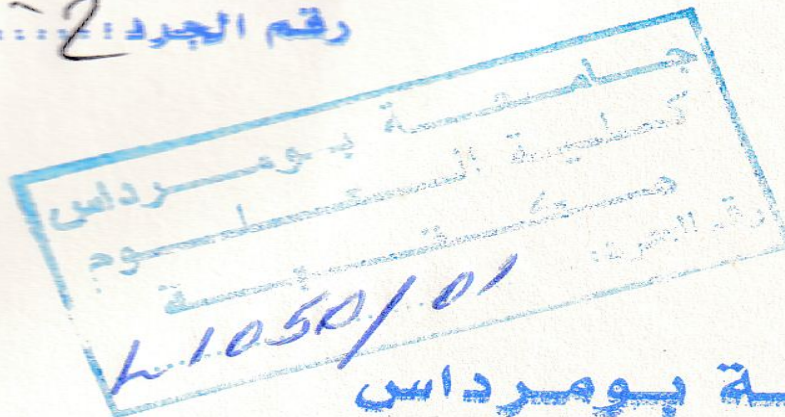 رقم الجرد:......2
جامعة بومرداس
كلية العلوم
مكتبة
L1050/01
ة بومرداس